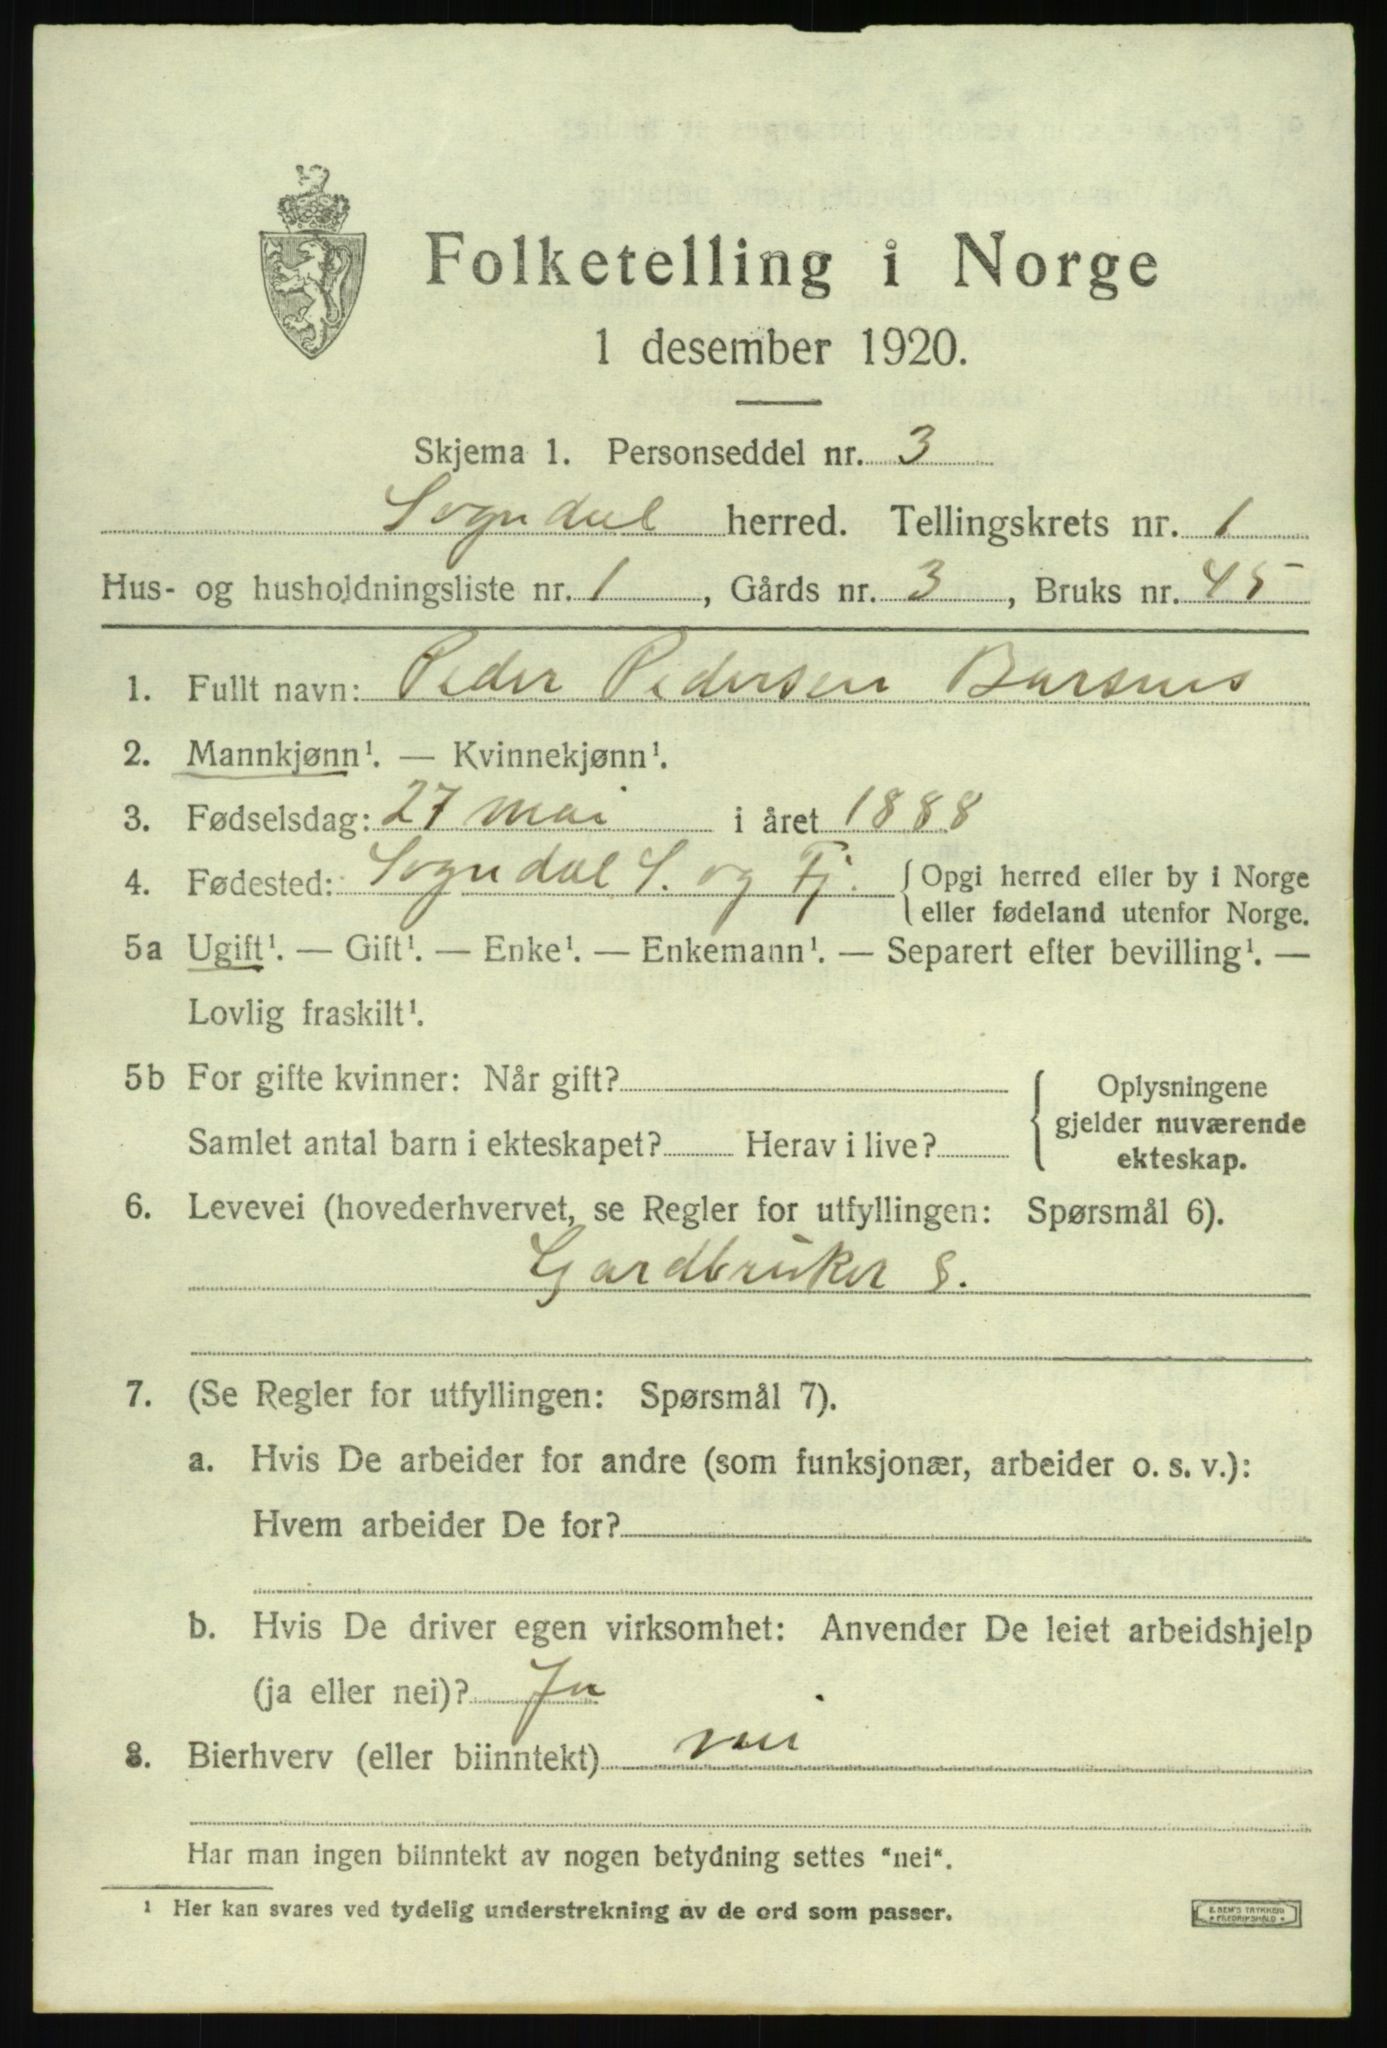 Folketelling i Norge
1 desember 1920.
Skjema 1. Personseddel nr. 3
Sogndal herred. Tellingskrets nr. 1
Hus- og husholdningsliste nr. 1, Gårds nr. 3, Bruks nr. 45
1. Fullt navn: Peder Pedersen Barsnes
2. Mannkjønn¹. — Kvinnekjønn¹.
3. Fødselsdag: 27 mai i året 1888
4. Fødested: Sogndal S. og Fj. { Opgi herred eller by i Norge
eller fødeland utenfor Norge.
5a Ugift¹. — Gift¹. — Enke¹. — Enkemann¹. — Separert efter bevilling¹. —
Lovlig fraskilt¹.
5b For gifte kvinner: Når gift?
Samlet antal barn i ekteskapet? Herav i live?
{ Oplysningene
gjelder nuværende
ekteskap.
6. Levevei (hovederhvervet, se Regler for utfyllingen: Spørsmål 6).
Gardbruker S.
7. (Se Regler for utfyllingen: Spørsmål 7).
a. Hvis De arbeider for andre (som funksjonær, arbeider o. s. v.):
Hvem arbeider De for?
b. Hvis De driver egen virksomhet: Anvender De leiet arbeidshjelp
(ja eller nei)? Ja
8. Bierhverv (eller biinntekt) nei
Har man ingen biinntekt av nogen betydning settes "nei".
¹ Her kan svares ved tydelig understrekning av de ord som passer.
E. SEM'S TRYKKERI
FREDRIKSHALD